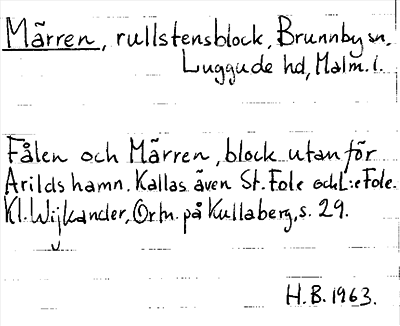 Märren, rullstensblock, Brunnby sn,
Luggude hd, Malm. l.
Fålen och Märren, block utanför
Arilds hamn. Kallas även St. Fole och L:e Fole.
Kl. Wijkander, Ortn. på Kullaberg, s. 29.
H.B. 1963.